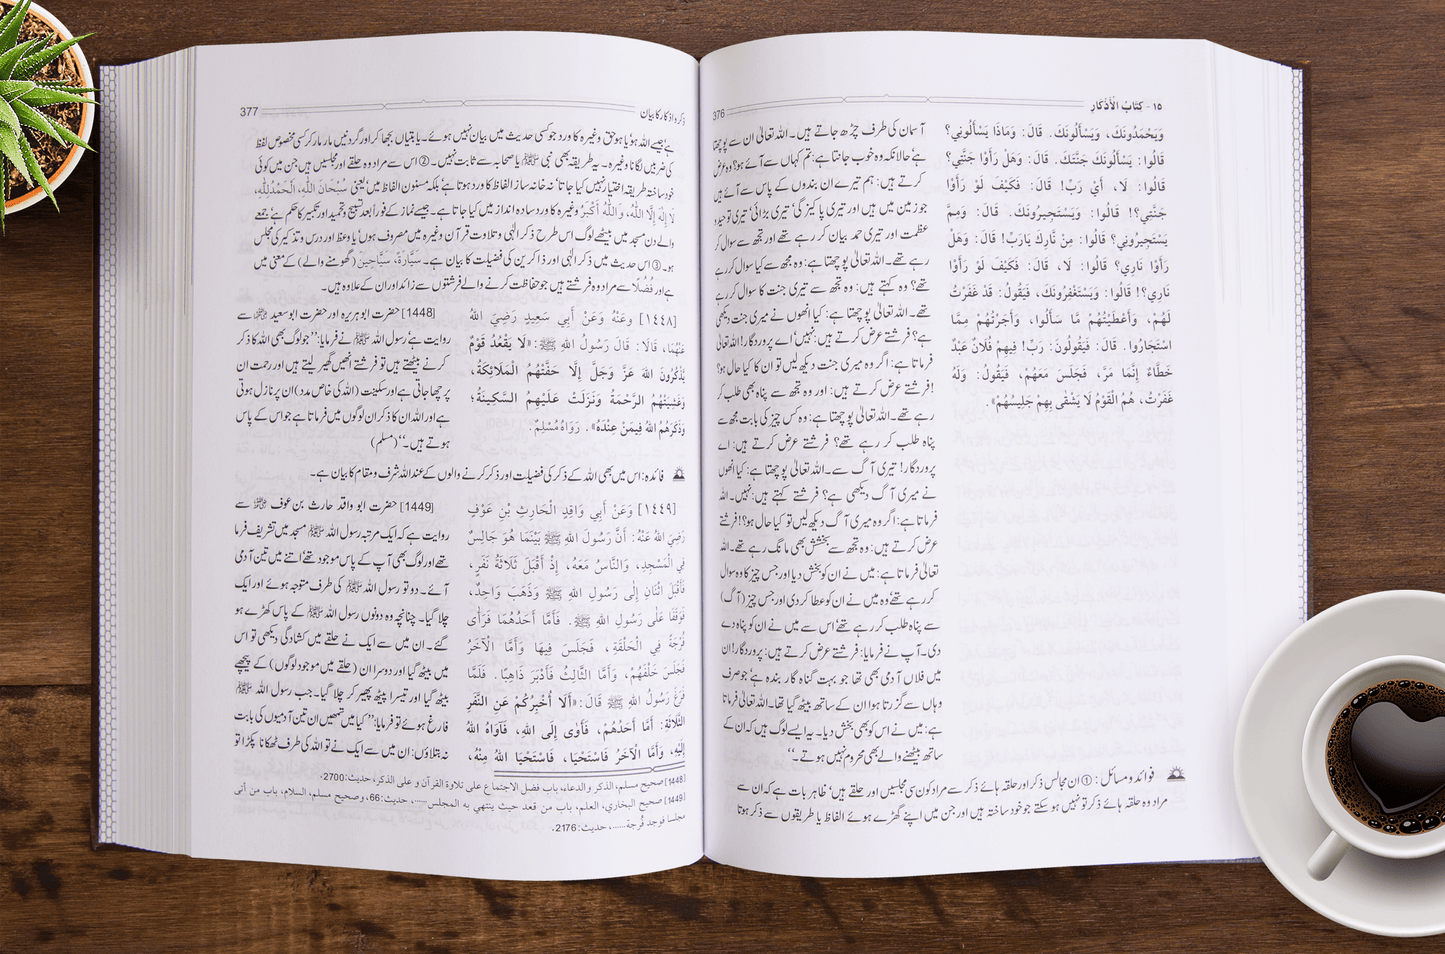 ١٥ - كِتَابُ الْأَذْكَارِ
376
وَيَحْمَدُونَكَ، وَيَسْأَلُونَكَ. قَالَ: وَمَاذَا يَسْأَلُونِي؟
قَالُوا: يَسْأَلُونَكَ جَنَّتَكَ. قَالَ: وَهَلْ رَأَوْا جَنَّتِي؟
قَالُوا: لَا، أَيْ رَبِّ! قَالَ: فَكَيْفَ لَوْ رَأَوْا
جَنَّتِي؟! قَالُوا: وَيَسْتَجِيرُونَكَ. قَالَ: وَمِمَّ
يَسْتَجِيرُونِي؟ قَالُوا: مِنْ نَّارِكَ يَارَبِّ! قَالَ: وَهَلْ
رَأَوْا نَارِي؟ قَالُوا: لَا، قَالَ: فَكَيْفَ لَوْ رَأَوْا
نَارِي؟! قَالُوا: وَيَسْتَغْفِرُونَكَ، فَيَقُولُ: قَدْ غَفَرْتُ
لَهُمْ، وَأَعْطَيْتُهُمْ مَّا سَأَلُوا، وَأَجَرْتُهُمْ مِمَّا
اسْتَجَارُوا. قَالَ: فَيَقُولُونَ: رَبِّ! فِيهِمْ فُلَانٌ عَبْدٌ
خَطَّاءٌ إِنَّمَا مَرَّ، فَجَلَسَ مَعَهُمْ، فَيَقُولُ: وَلَهُ
غَفَرْتُ، هُمُ الْقَوْمُ لَا يَشْقَى بِهِمْ جَلِيسُهُمْ».
آسمان کی طرف چڑھ جاتے ہیں۔ اللہ تعالیٰ ان سے پوچھتا
ہے حالانکہ وہ خوب جانتا ہے: تم کہاں سے آئے ہو؟ وہ عرض
کرتے ہیں: ہم تیرے ان بندوں کے پاس سے آئے ہیں
جو زمین میں ہیں اور تیری پاکیزگی، تیری بڑائی، تیری توحید و
عظمت اور تیری حمد بیان کر رہے تھے اور تجھ سے سوال کر
رہے تھے۔ اللہ تعالیٰ پوچھتا ہے: وہ مجھ سے کیا سوال کر رہے
تھے؟ وہ کہتے ہیں: وہ تجھ سے تیری جنت کا سوال کر رہے
تھے۔ اللہ تعالیٰ پوچھتا ہے: کیا انھوں نے میری جنت دیکھی
ہے؟ فرشتے عرض کرتے ہیں: نہیں اے پروردگار! اللہ تعالیٰ
فرماتا ہے: اگر وہ میری جنت دیکھ لیں تو ان کا کیا حال ہو؟
!فرشتے عرض کرتے ہیں: اور وہ تجھ سے پناہ بھی طلب کر
رہے تھے۔ اللہ تعالیٰ پوچھتا ہے: وہ کس چیز کی بابت مجھ سے
پناہ طلب کر رہے تھے؟ فرشتے عرض کرتے ہیں: اے
پروردگار! تیری آگ سے۔ اللہ تعالیٰ پوچھتا ہے: کیا انھوں
نے میری آگ دیکھی ہے؟ فرشتے کہتے ہیں: نہیں۔ اللہ
فرماتا ہے: اگر وہ میری آگ دیکھ لیں تو کیا حال ہو؟! فرشتے
عرض کرتے ہیں: وہ تجھ سے بخشش بھی مانگ رہے تھے۔ اللہ
تعالیٰ فرماتا ہے: میں نے ان کو بخش دیا اور جس چیز کا وہ سوال
کر رہے تھے، وہ میں نے ان کو عطا کر دی اور جس چیز (آگ)
سے پناہ طلب کر رہے تھے، اس سے میں نے ان کو پناہ دے
دی۔ آپ نے فرمایا: فرشتے عرض کرتے ہیں: پروردگار! ان
میں فلاں آدمی بھی تھا جو بہت گناہ گار بندہ ہے، جو صرف
وہاں سے گزرتا ہوا ان کے ساتھ بیٹھ گیا تھا۔ اللہ تعالیٰ فرماتا
ہے: میں نے اس کو بھی بخش دیا۔ یہ ایسے لوگ ہیں کہ ان کے
ساتھ بیٹھنے والے بھی محروم نہیں ہوتے۔“
فوائد و مسائل: ① ان مجالس ذکر اور حلقہ ہائے ذکر سے مراد کون سی مجلسیں اور حلقے ہیں، ظاہر بات ہے کہ ان سے
مراد وہ حلقہ ہائے ذکر تو نہیں ہو سکتے جو خود ساختہ ہیں اور جن میں اپنے گھڑے ہوئے الفاظ یا طریقوں سے ذکر ہوتا
ذکر و اذکار کا بیان
377
ہے، جیسے اللہ ہو، یا ہو حق وغیرہ کا ورد جو کسی حدیث میں بیان نہیں ہوئے۔ یا بتیاں بجھا کر اور گردنیں مار مار کر کسی مخصوص لفظ
کی ضربیں لگانا وغیرہ۔ یہ طریقہ بھی نبی ﷺ یا صحابہ سے ثابت نہیں۔ ② اس سے مراد وہ حلقے اور مجلسیں ہیں جن میں کوئی
خود ساختہ طریقہ اختیار نہیں کیا جاتا، نہ خانہ ساز الفاظ کا ورد ہوتا ہے، بلکہ مسنون الفاظ میں، یعنی سُبْحَانَ اللّٰهِ، اَلْحَمْدُلِلّٰهِ،
لَا إِلٰهَ إِلَّا اللّٰهُ، وَاللّٰهُ أَكْبَرُ وغیرہ کا ورد سادہ انداز میں کیا جاتا ہے۔ جیسے نماز کے فوراً بعد تسبیح و تحمید اور تکبیر کا حکم ہے، جمعے
والے دن مسجد میں بیٹھے لوگ اس طرح ذکر الٰہی و تلاوت قرآن وغیرہ میں مصروف ہوں، یا وعظ اور درس و تذکیر کی مجلس
ہو۔ ③ اس حدیث میں ذکر الٰہی اور ذاکرین کی فضیلت کا بیان ہے۔ سَيَّارَة، سَيَّاحِين (گھومنے والے) کے معنی میں
ہے اور فُضُلًا سے مراد وہ فرشتے ہیں جو حفاظت کرنے والے فرشتوں سے زائد اور ان کے علاوہ ہیں۔
[١٤٤٨] وعَنْهُ وَعَنْ أَبِي سَعِيدٍ رَضِيَ اللهُ
عَنْهُمَا، قَالَا: قَالَ رَسُولُ اللهِ ﷺ: «لَا يَقْعُدُ قَوْمٌ
يَذْكُرُونَ اللهَ عَزَّ وَجَلَّ إِلَّا حَفَّتْهُمُ الْمَلَائِكَةُ،
وَغَشِيَتْهُمُ الرَّحْمَةُ وَنَزَلَتْ عَلَيْهِمُ السَّكِينَةُ؛
وَذَكَرَهُمُ اللهُ فِيمَنْ عِنْدَهُ». رَوَاهُ مُسْلِمٌ.
[1448] حضرت ابوہریرہ اور حضرت ابوسعید ؓ سے
روایت ہے، رسول اللہ ﷺ نے فرمایا: ”جو لوگ بھی اللہ کا ذکر
کرنے بیٹھتے ہیں تو فرشتے انھیں گھیر لیتے ہیں اور رحمت ان
پر چھا جاتی ہے اور سکینت (اللہ کی خاص مدد) ان پر نازل ہوتی
ہے اور اللہ ان کا ذکر ان لوگوں میں فرماتا ہے جو اس کے پاس
ہوتے ہیں۔“ (مسلم)
فائدہ: اس میں بھی اللہ کے ذکر کی فضیلت اور ذکر کرنے والوں کے عند اللہ شرف و مقام کا بیان ہے۔
[١٤٤٩] وَعَنْ أَبِي وَاقِدٍ الْحَارِثِ بْنِ عَوْفٍ
رَضِيَ اللهُ عَنْهُ: أَنَّ رَسُولَ اللهِ ﷺ بَيْنَمَا هُوَ جَالِسٌ
فِي الْمَسْجِدِ، وَالنَّاسُ مَعَهُ، إِذْ أَقْبَلَ ثَلَاثَةُ نَفَرٍ،
فَأَقْبَلَ اثْنَانِ إِلَى رَسُولِ اللهِ ﷺ وَذَهَبَ وَاحِدٌ،
فَوَقَفَا عَلَى رَسُولِ اللهِ ﷺ. فَأَمَّا أَحَدُهُمَا فَرَأَى
فُرْجَةً فِي الْحَلْقَةِ، فَجَلَسَ فِيهَا وَأَمَّا الْآخَرُ
فَجَلَسَ خَلْفَهُمْ، وَأَمَّا الثَّالِثُ فَأَدْبَرَ ذَاهِبًا. فَلَمَّا
فَرَغَ رَسُولُ اللهِ ﷺ قَالَ: «أَلَا أُخْبِرُكُمْ عَنِ النَّفَرِ
الثَّلَاثَةِ: أَمَّا أَحَدُهُمْ، فَأَوَى إِلَى اللهِ، فَآوَاهُ اللهُ
إِلَيْهِ، وَأَمَّا الْآخَرُ فَاسْتَحْيَا، فَاسْتَحْيَا اللهُ مِنْهُ،
[1449] حضرت ابو واقد حارث بن عوف ؓ سے
روایت ہے کہ ایک مرتبہ رسول اللہ ﷺ مسجد میں تشریف فرما
تھے اور لوگ بھی آپ کے پاس موجود تھے، اتنے میں تین آدمی
آئے۔ دو تو رسول اللہ ﷺ کی طرف متوجہ ہوئے اور ایک
چلا گیا۔ چنانچہ وہ دونوں رسول اللہ ﷺ کے پاس کھڑے ہو
گئے۔ ان میں سے ایک نے حلقے میں کشادگی دیکھی تو اس
میں بیٹھ گیا اور دوسرا ان (حلقے میں موجود لوگوں) کے پیچھے
بیٹھ گیا اور تیسرا پیٹھ پھیر کر چلا گیا۔ جب رسول اللہ ﷺ
فارغ ہوئے تو فرمایا: ”کیا میں تمھیں ان تین آدمیوں کی بابت
نہ بتلاؤں: ان میں سے ایک نے تو اللہ کی طرف ٹھکانا پکڑا تو
[1448] صحيح مسلم، الذكر والدعاء، باب فضل الاجتماع على تلاوة القرآن و على الذكر، حديث: 2700.
[1449] صحيح البخاري، العلم، باب من قعد حيث ينتهي به المجلس......، حديث: 66، وصحيح مسلم، السلام، باب من أتى
مجلسا فوجد فرجة......، حديث: 2176.